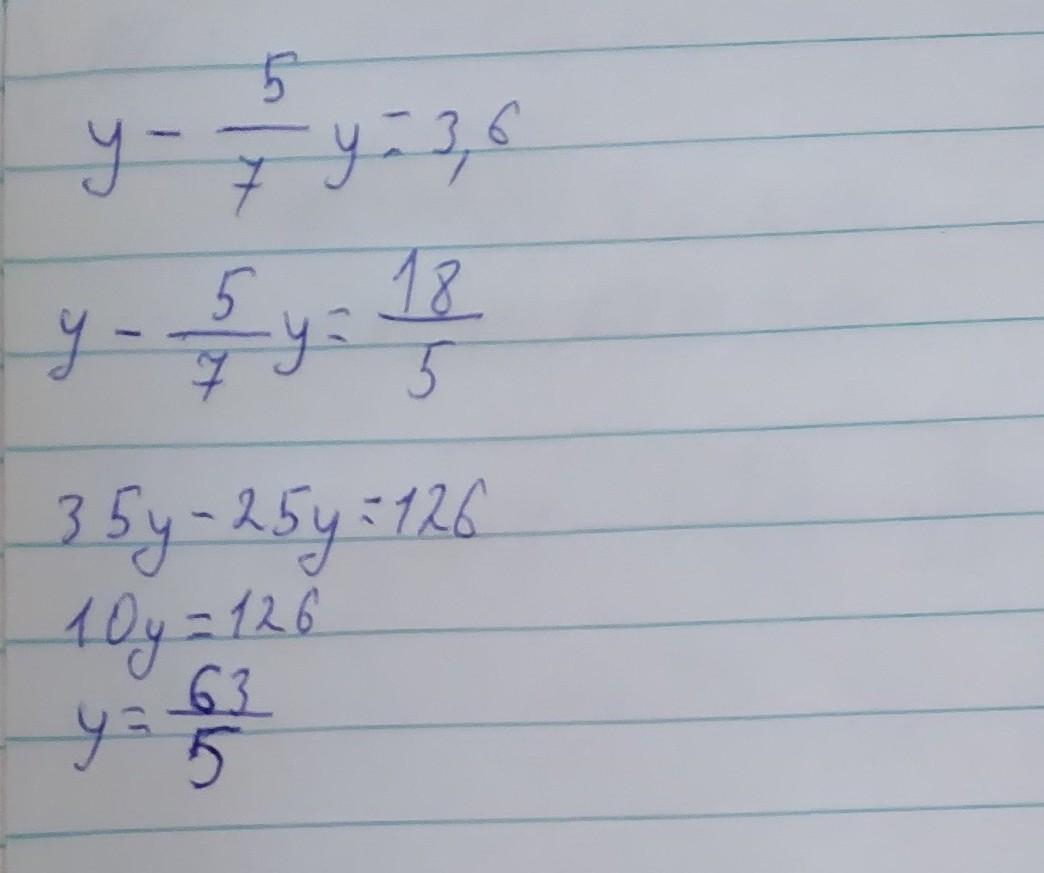 y - 5/7 y = 3,6
y - 5/7 y = 18/5
35y - 25y = 126
10y = 126
y = 63/5